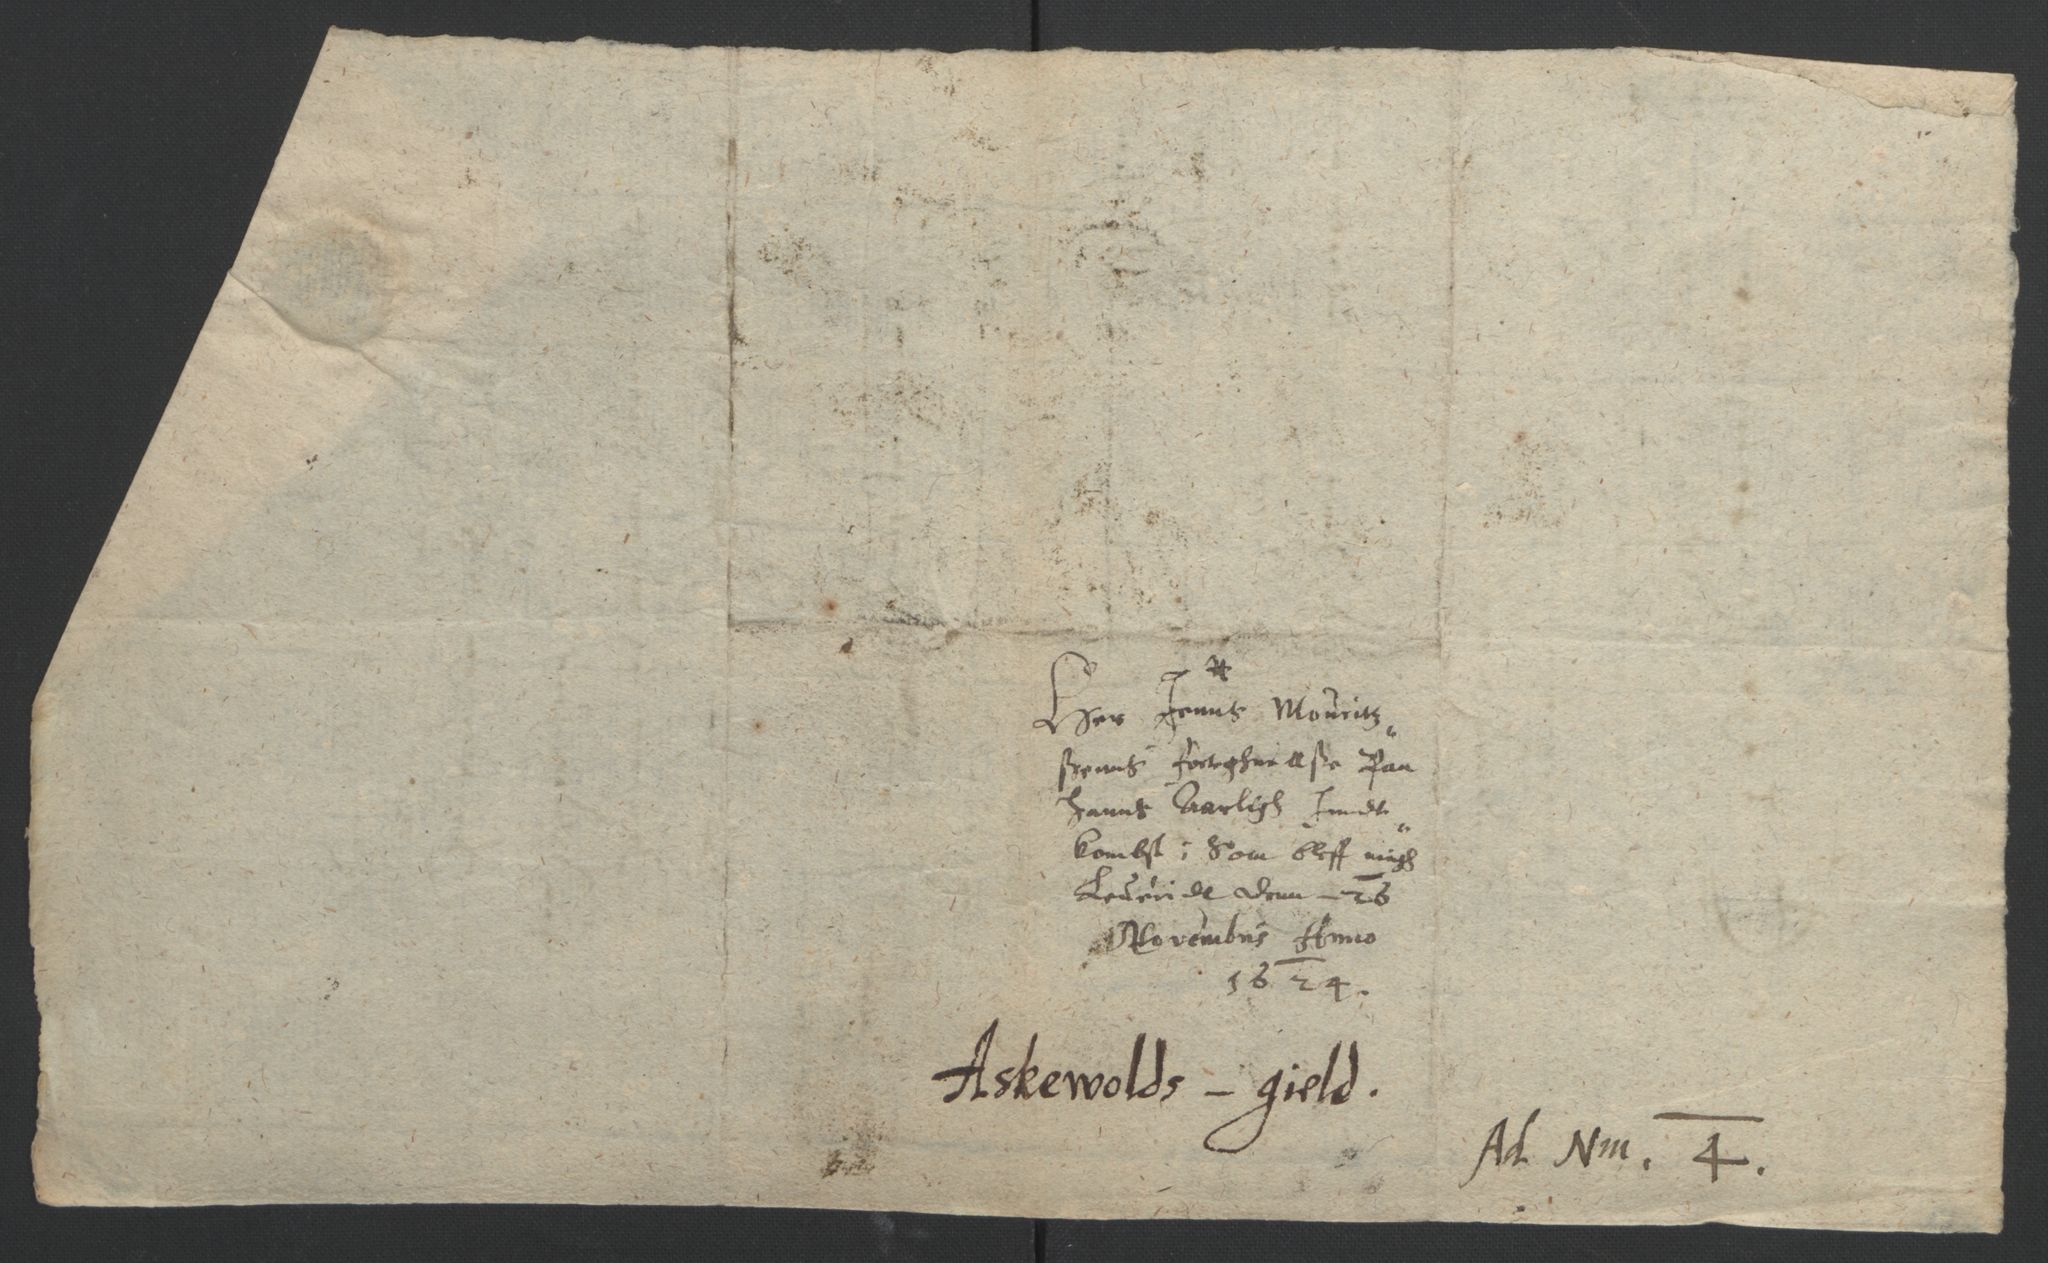 Her Jenns Mouritz„
ßenns forteghnellße Paa
hanns Aarligh Inndt„
kombst; Som bleff migh
Leueridt denn – 26
Novembris Anno
1624.
Askewolds – gield.
Ad Nm. 4.